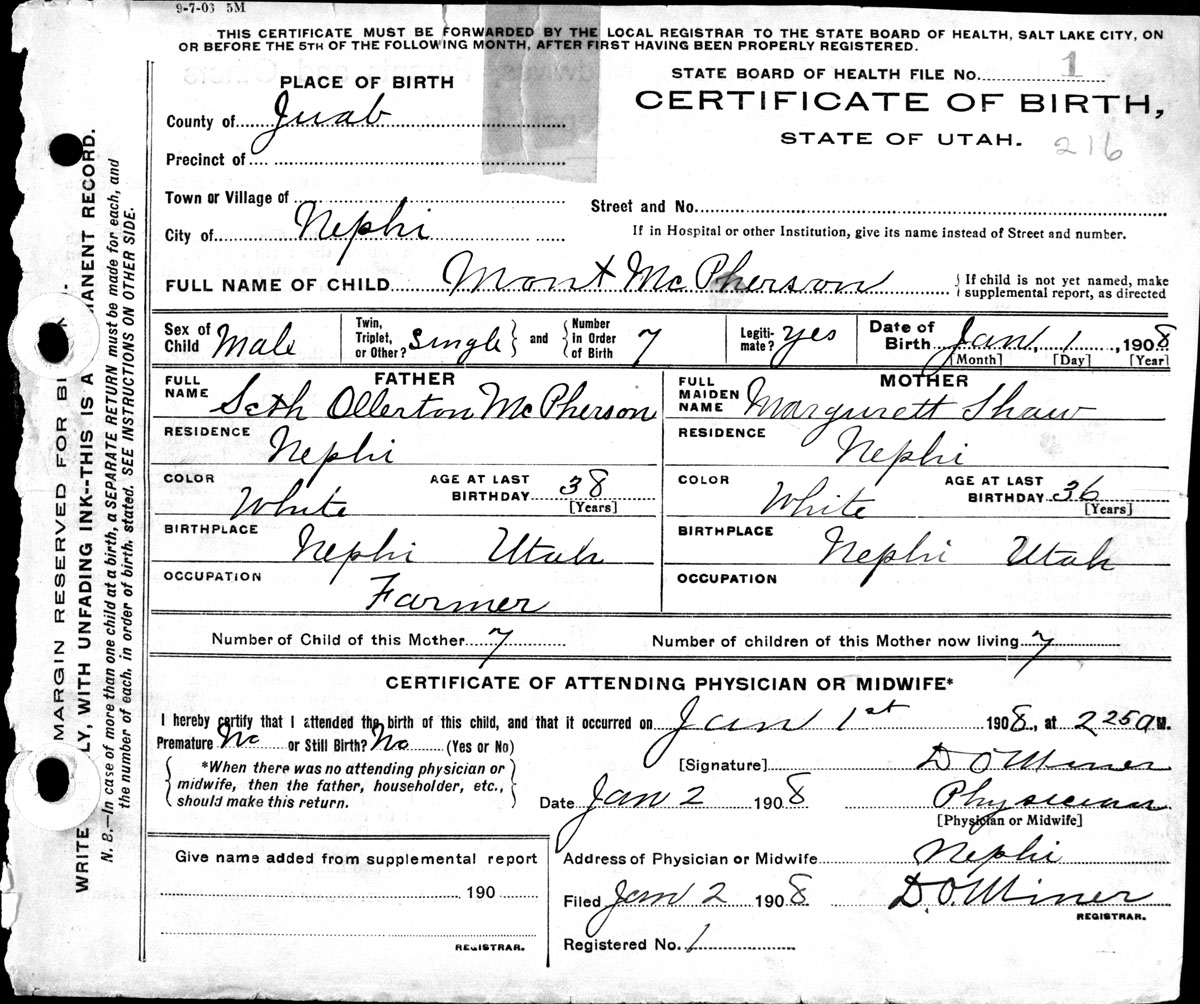 9-7-03 5M
THIS CERTIFICATE MUST BE FORWARDED BY THE LOCAL REGISTRAR TO THE STATE BOARD OF HEALTH, SALT LAKE CITY, ON
OR BEFORE THE 5TH OF THE FOLLOWING MONTH, AFTER FIRST HAVING BEEN PROPERLY REGISTERED.
PLACE OF BIRTH
County of Juab
Precinct of
Town or Village of
City of Nephi
STATE BOARD OF HEALTH FILE No. 1
CERTIFICATE OF BIRTH,
STATE OF UTAH.
216
Street and No.
If in Hospital or other Institution, give its name instead of Street and number.
FULL NAME OF CHILD Mont McPherson { If child is not yet named, make
supplemental report, as directed
Sex of Child Male
Twin, Triplet, or Other? Single } and { Number In Order of Birth 7
Legiti-mate? yes
Date of Birth Jan, 1, 1908
[Month] [Day] [Year]
FATHER
FULL NAME Seth Ollerton McPherson
RESIDENCE Nephi
COLOR White
AGE AT LAST BIRTHDAY 38 [Years]
BIRTHPLACE Nephi Utah
OCCUPATION Farmer
MOTHER
FULL MAIDEN NAME Margurett Shaw
RESIDENCE Nephi
COLOR White
AGE AT LAST BIRTHDAY 36 [Years]
BIRTHPLACE Nephi Utah
OCCUPATION
Number of Child of this Mother 7 Number of children of this Mother now living 7
CERTIFICATE OF ATTENDING PHYSICIAN OR MIDWIFE*
I hereby certify that I attended the birth of this child, and that it occurred on Jan 1st 1908, at 2 25 a M.
Premature No or Still Birth? No (Yes or No)
*When there was no attending physician or
midwife, then the father, householder, etc.,
should make this return.
[Signature] D O Miner
Date Jan 2 1908 Physician
[Physician or Midwife]
Give name added from supplemental report
190
REGISTRAR.
Address of Physician or Midwife Nephi
Filed Jan 2 1908 D. O. Miner
REGISTRAR.
Registered No. 1
MARGIN RESERVED FOR
WRITE LY, WITH UNFADING INK--THIS IS A MANENT RECORD.
N. B.—In case of more than one child at a birth, a SEPARATE RETURN must be made for each, and
the number of each, in order of birth, stated. SEE INSTRUCTIONS ON OTHER SIDE.